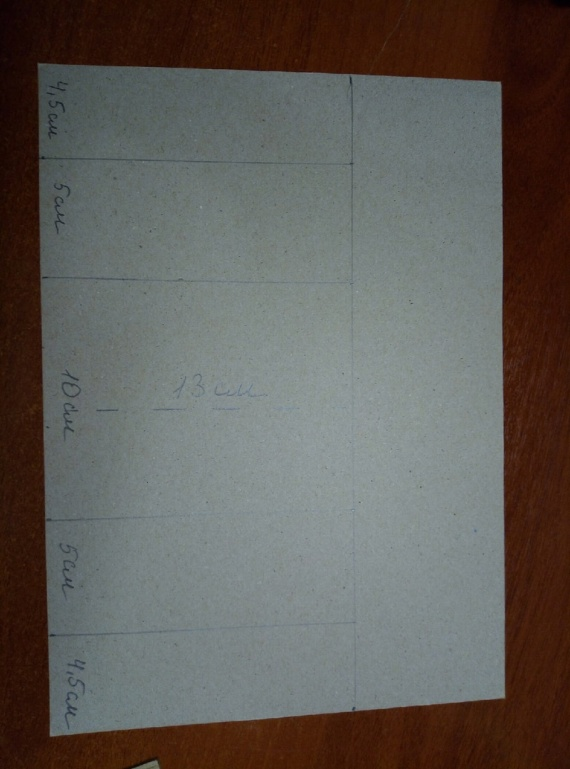 4,5см
5см
10см
13 см
5см
4,5см